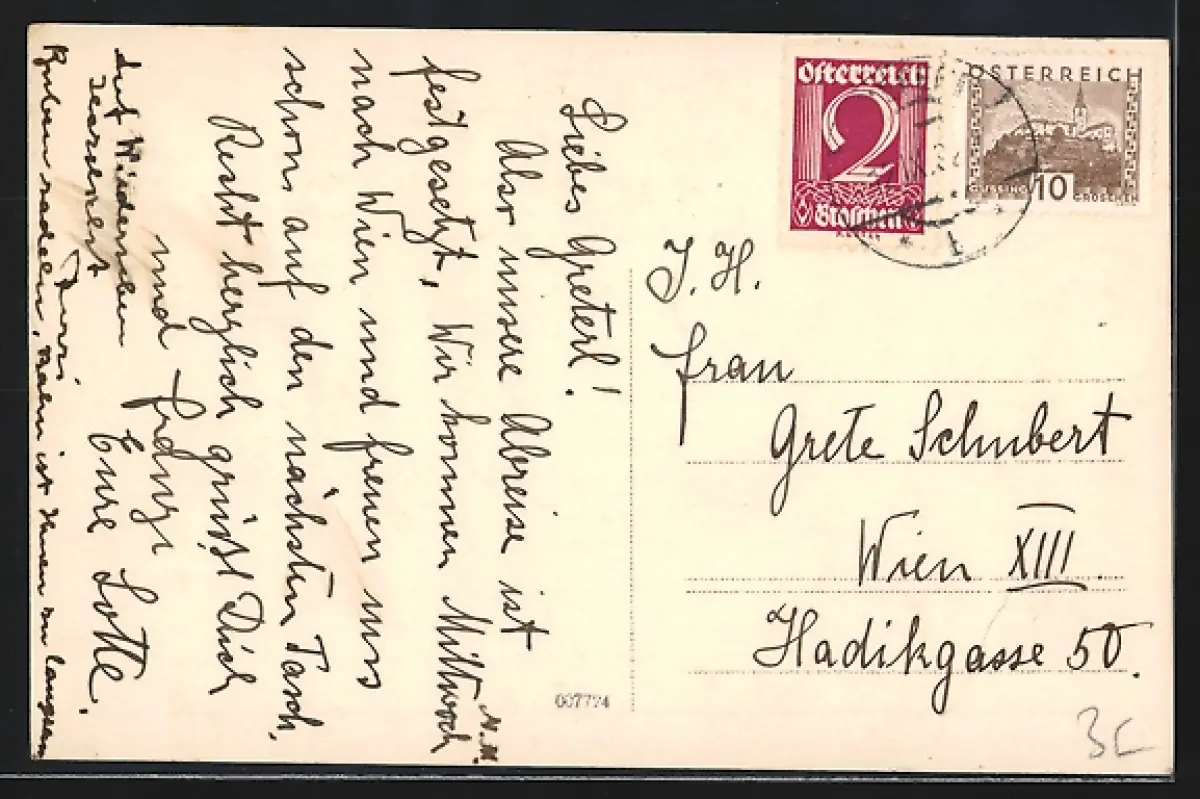 Liebes Greterl!
Also unsere Abreise ist
festgesetzt, Wir kommen Mittwoch N.M.
nach Wien und freuen uns
schon auf den nächsten Tasch.
Recht herzlich grüßt Dich
und
Eure Lotte.
Auf Wiedersehen
ist
Österreich
2
Groschen
ÖSTERREICH
GÜSSING 10 GROSCHEN
I. H.
Frau
Grete Schubert
Wien XIII.
Hadikgasse 50.
007724
3E